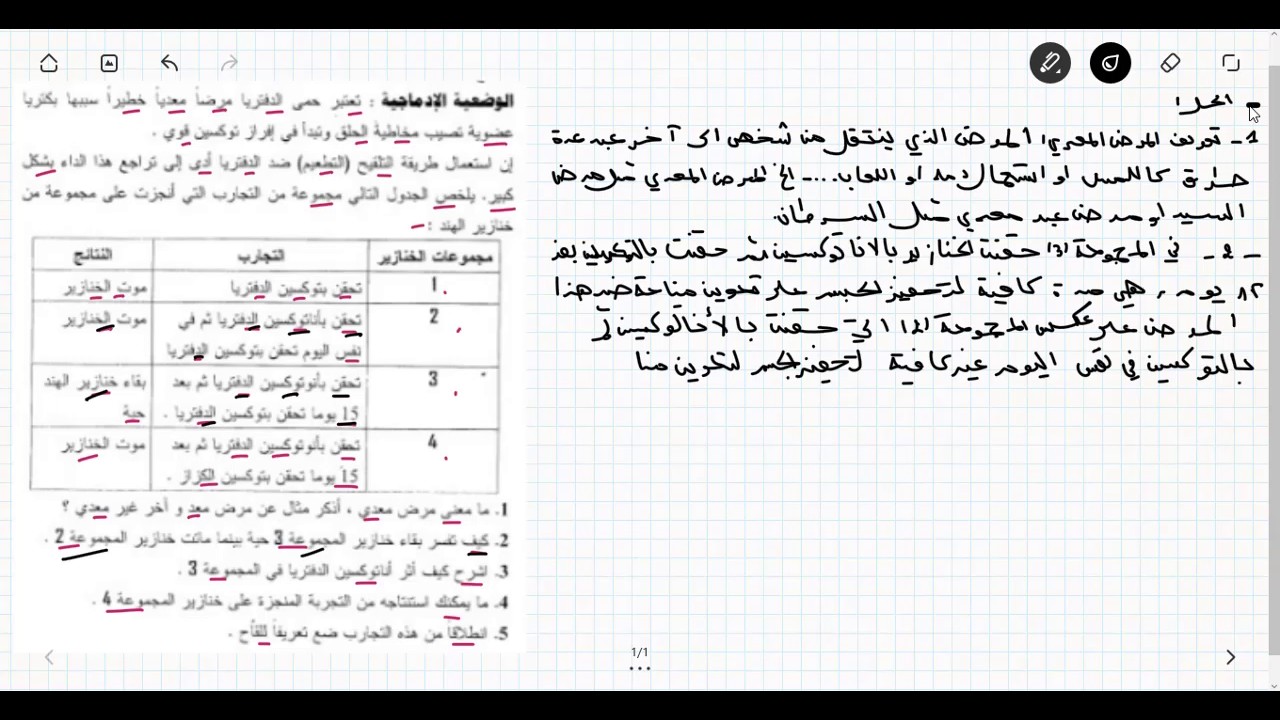 الوضعية الإدماجية : تعتبر حمى الدفتريا مرضاً معدياً خطيراً سببها بكتريا
عضوية تصيب مخاطية الحلق وتبدأ في إفراز توكسين قوي .
إن استعمال طريقة التلقيح (التطعيم) ضد الدفتريا أدى إلى تراجع هذا الداء بشكل
كبير. يلخص الجدول التالي مجموعة من التجارب التي أنجزت على مجموعة من
خنازير الهند :
مجموعات الخنازير التجارب النتائج
1 تحقن بتوكسين الدفتريا موت الخنازير
2 تحقن بأناتوكسين الدفتريا ثم في موت الخنازير
نفس اليوم تحقن بتوكسين الدفتريا
3 تحقن بأنوتوكسين الدفتريا ثم بعد بقاء خنازير الهند
15 يوما تحقن بتوكسين الدفتريا . حية
4 تحقن بأنوتوكسين الدفتريا ثم بعد موت الخنازير
15 يوما تحقن بتوكسين الكزاز .
1. ما معنى مرض معدي ، أذكر مثال عن مرض معد و أخر غير معدي ؟
2. كيف تفسر بقاء خنازير المجموعة 3 حية بينما ماتت خنازير المجموعة 2 .
3. اشرح كيف أثر أناتوكسين الدفتريا في المجموعة 3 .
4. ما يمكنك استنتاجه من التجربة المنجزة على خنازير المجموعة 4 .
5. انطلاقاً من هذه التجارب ضع تعريفاً للقاح .
- الحل
1- تعريف المرض المعدي: المرض الذي ينتقل من شخص الى آخر عبر عدة
طرق كاللمس او استعمال او اللعاب....- الخ المرض المعدي مثل مرض
السيدا ومرض غير معدي مثل السرطان.
- 2 - في المجموعة (3) حقنت الخنازير بالاناتوكسين ثم حقنت بالتوكسين بعد
يوم، هي مدة كافية لتحفيز الجسم على تكوين مناعة ضد هذا
المرض على عكس المجموعة (2) التي حقنت بالأناتوكسين ثم
بالتوكسين في نفس اليوم غير كافية لتحفيز الجسم لتكوين منا
1/1